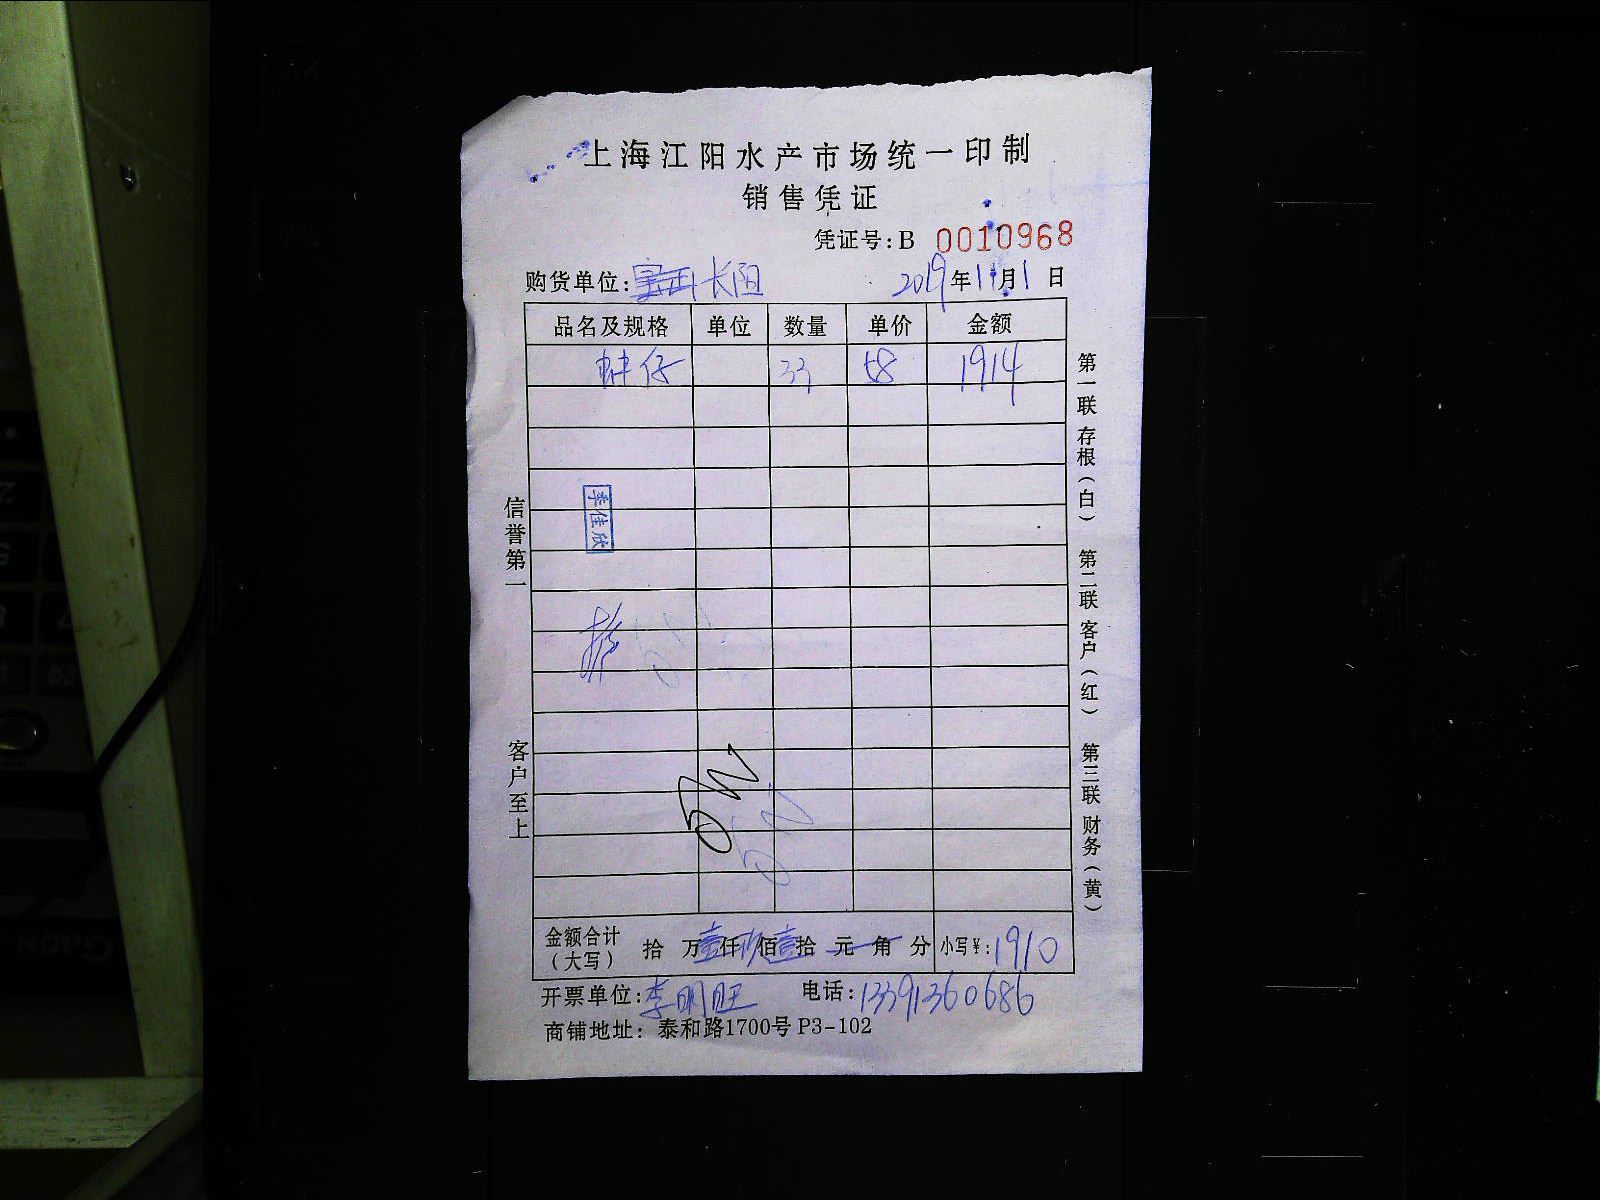 上海江阳水产市场统一印制
销售凭证
凭证号:B 0010968
购货单位: 长阳 2019年11月1日
品名及规格 单位 数量 单价 金额
仔 33 58 1914
李佳欣
信誉第一
客户至上
第一联 存根(白) 第二联 客户(红) 第三联 财务(黄)
金额合计(大写) 拾 万壹仟玖佰壹拾 元 角 分 小写¥:1910
开票单位:李明旺 电话:13391360686
商铺地址: 泰和路1700号 P3-102